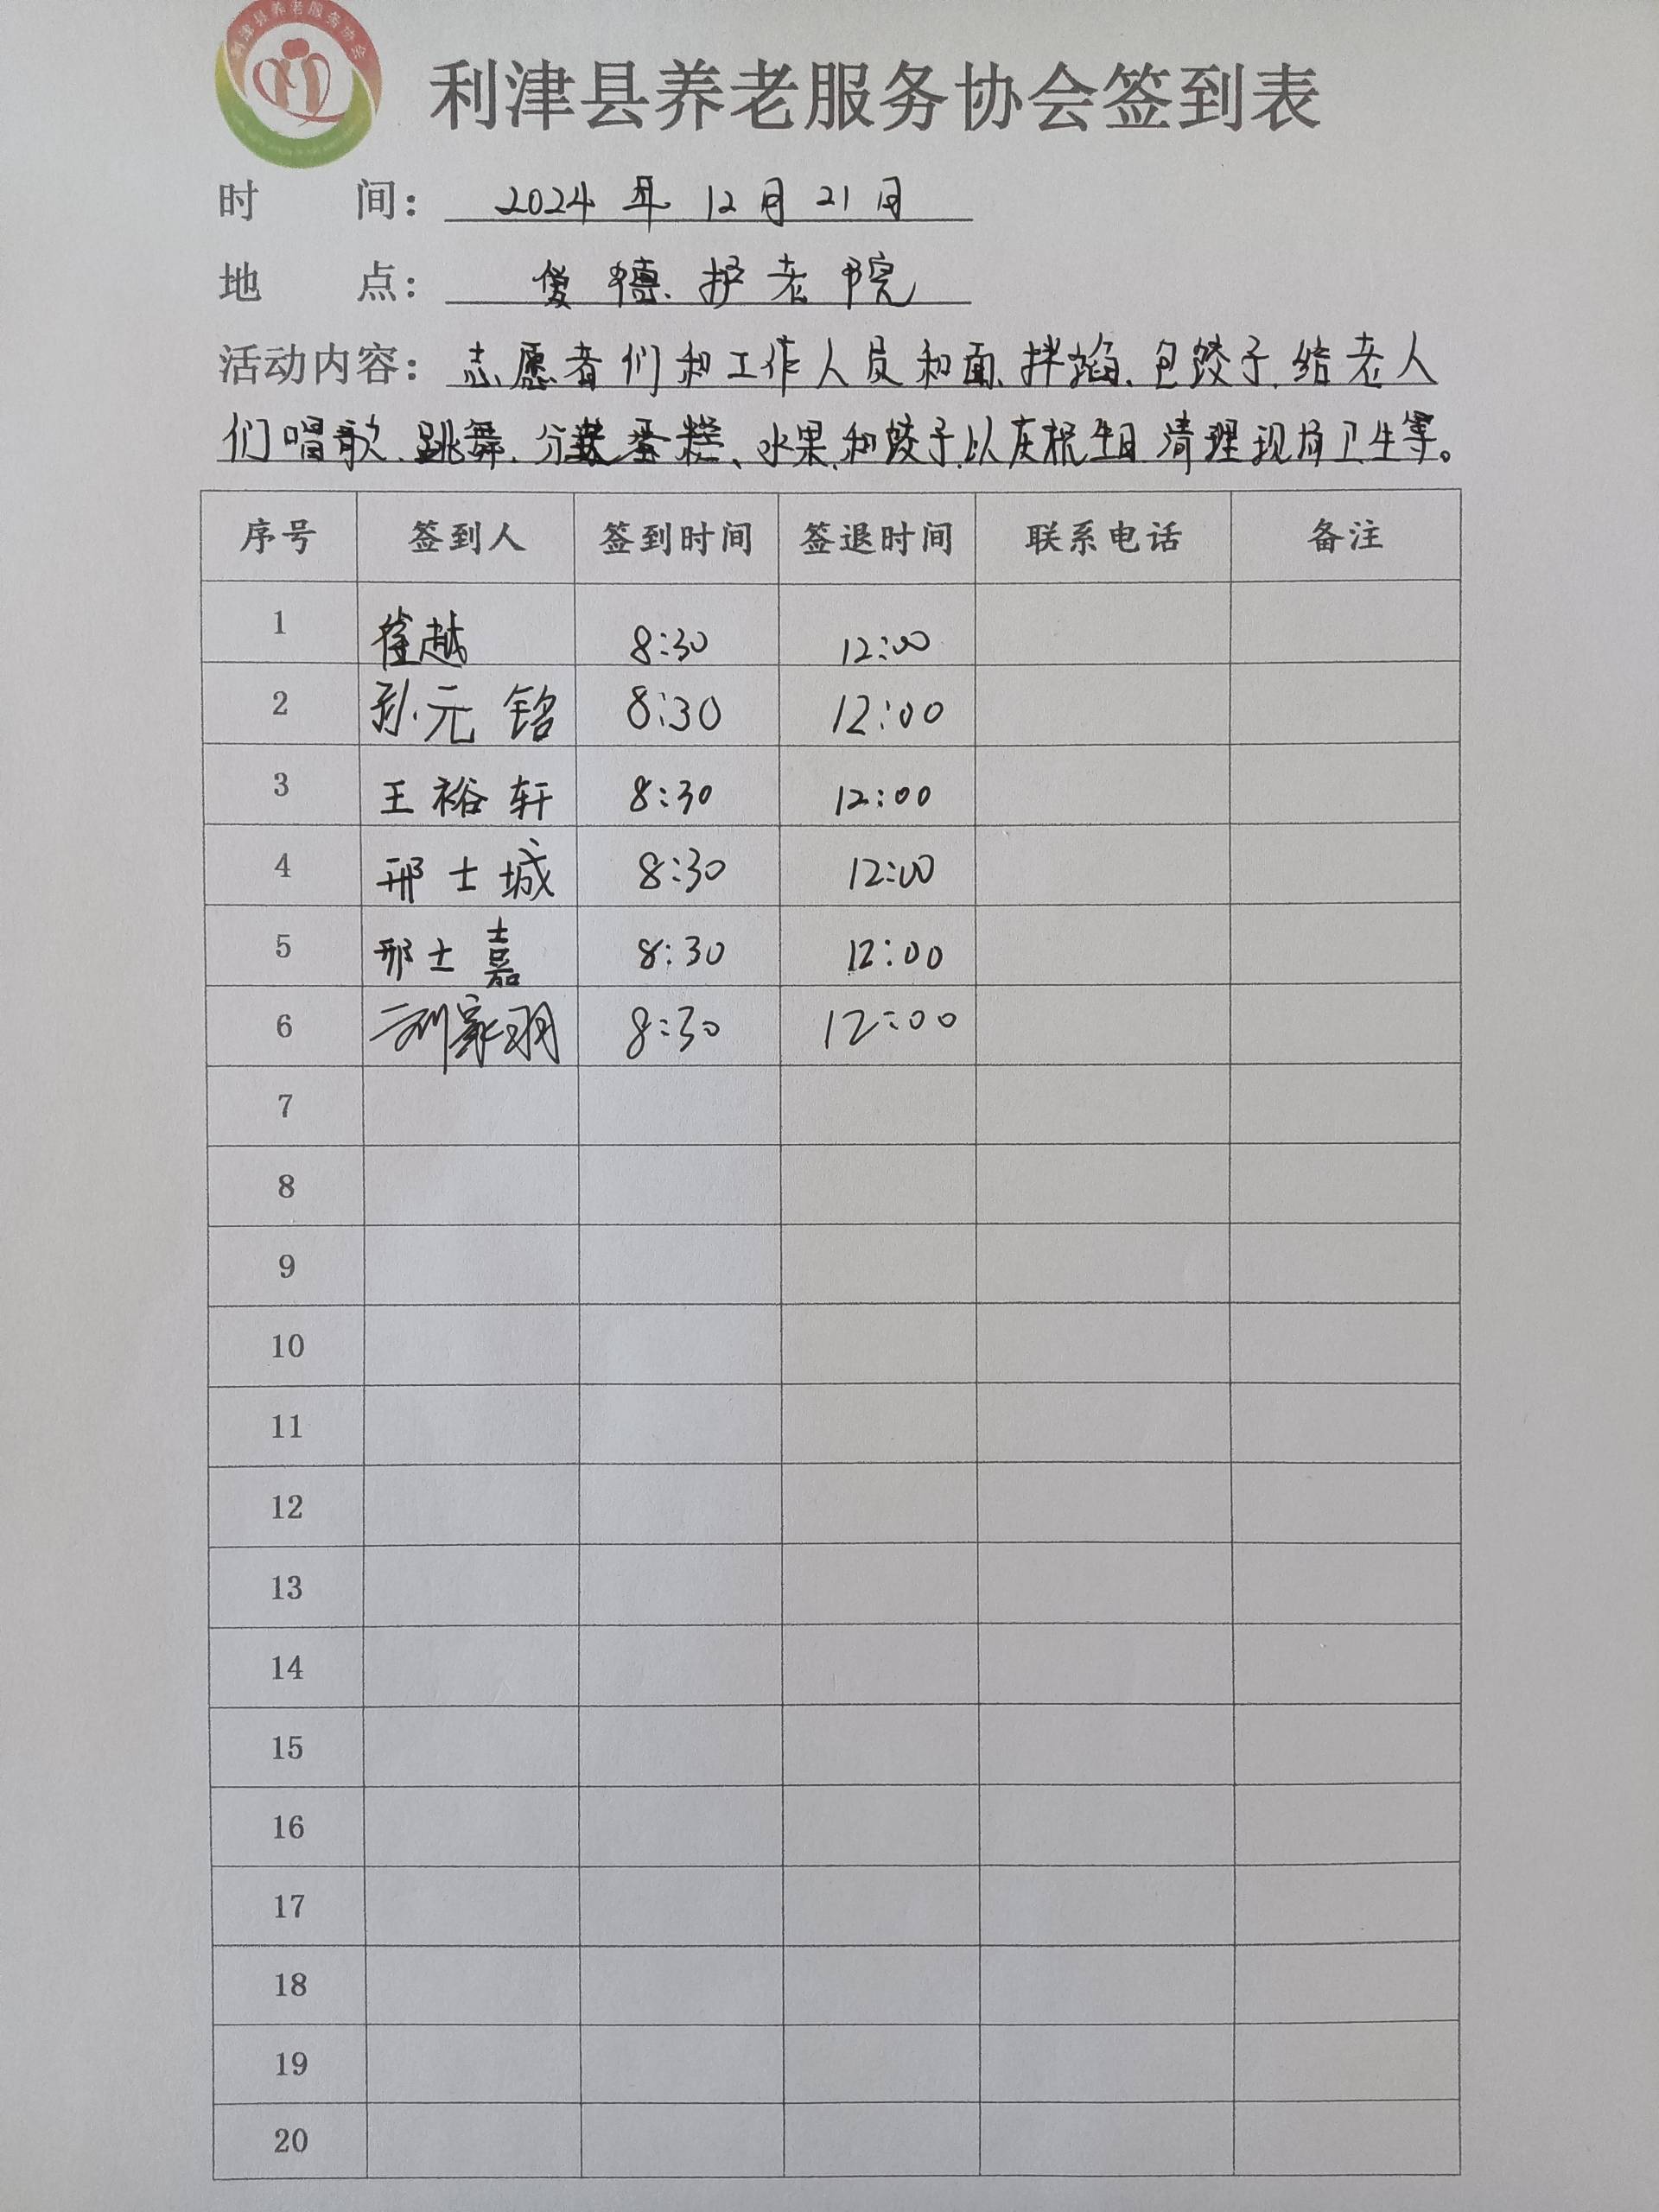 利津县养老服务协会
利津县养老服务协会签到表
时 间： 2024年12月21日
地 点： 德护老院
活动内容： 志愿者们和工作人员和面、拌馅、包饺子、给老人
们唱歌、跳舞、分装蛋糕、水果和饺子,以庆祝生日清理现场卫生等。
序号 签到人 签到时间 签退时间 联系电话 备注
1 崔越 8:30 12:00
2 孙元铭 8:30 12:00
3 王裕轩 8:30 12:00
4 邢士城 8:30 12:00
5 邢士嘉 8:30 12:00
6 刘家羽 8:30 12:00
7
8
9
10
11
12
13
14
15
16
17
18
19
20